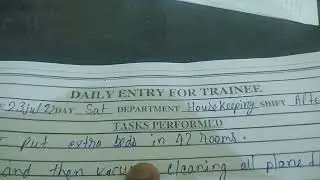 DAILY ENTRY FOR TRAINEE
23 jul 22 DAY Sat DEPARTMENT Housekeeping SHIFT Afte
TASKS PERFORMED
put extra beds in 42 rooms.
and then cleaning all